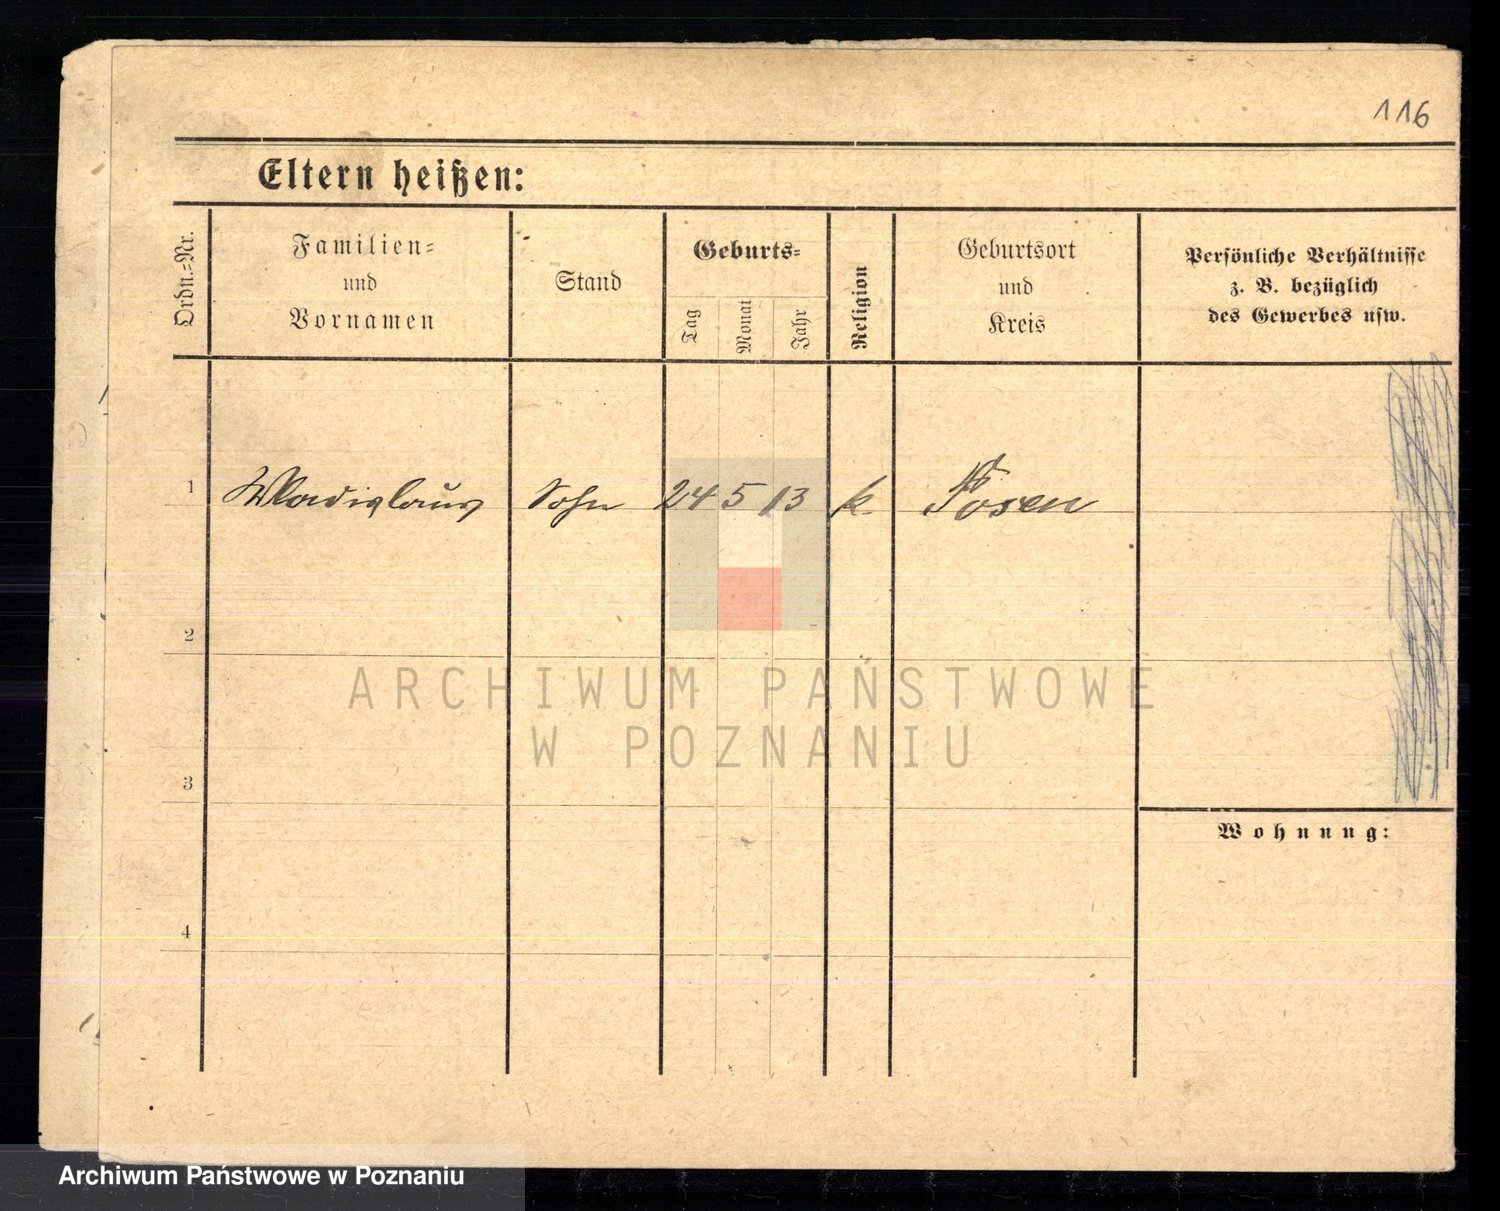 116
Eltern heißen:
Ordn.=Nr.
Familien=
und
Vornamen
Stand
Geburts=
Tag
Monat
Jahr
Religion
Geburtsort
und
Kreis
Persönliche Verhältnisse
z. B. bezüglich
des Gewerbes usw.
1 Wladislaus Sohn 24 5 13 k. Posen
2
ARCHIWUM PAŃSTWOWE
W POZNANIU
3
Wohnung:
4
Archiwum Państwowe w Poznaniu